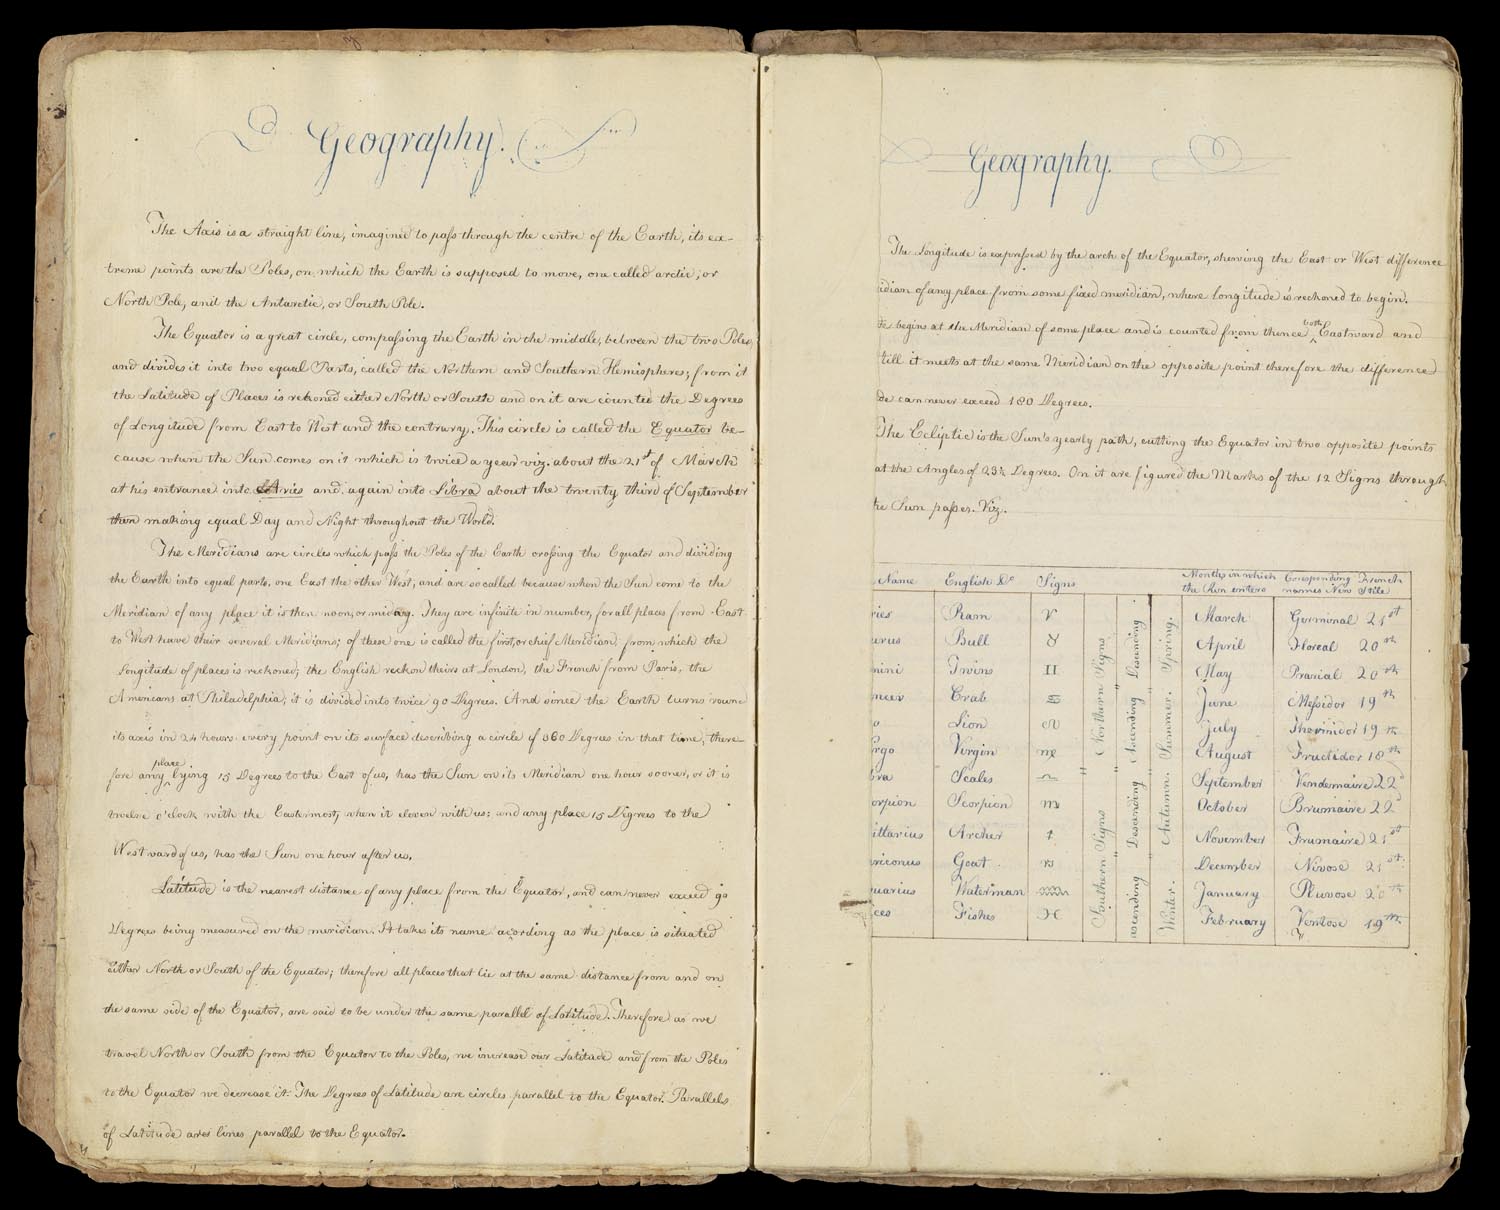 Geography.
The Axis is a straight line, imagined to pass through the centre of the Earth, its ex-
treme points are the Poles, on which the Earth is supposed to move, one called arctic, or
North Pole, and the Antarctic, or South Pole.
The Equator is a great circle, compassing the Earth in the middle, between the two Poles,
and divides it into two equal Parts, called the Northern and Southern Hemispheres; from it
the Latitude of Places is reckoned either North or South and on it are counted the Degrees
of Longitude from East to West and the contrary. This circle is called the Equator be-
cause when the Sun comes on it which is twice a year viz. about the 21st of March
at his entrance into Aries and again into Libra about the twenty third of September
then making equal Day and Night throughout the World.
The Meridians are circles which pass the Poles of the Earth crossing the Equator and dividing
the Earth into equal parts, one East the other West, and are so called because when the Sun come to the
Meridian of any place it is then noon, or miday. They are infinite in number, for all places from East
to West have their several Meridians; of these one is called the first, or chief Meridian, from which the
Longitude of places is reckoned; the English reckon theirs at London, the French from Paris, the
Americans at Philadelphia, it is divided into twice 90 Degrees. And since the Earth turns round
its axis in 24 hours every point on its surface describing a circle of 360 Degrees in that time, there-
fore any place lying 15 Degrees to the East of us, has the Sun on its Meridian one hour sooner, or it is
twelve o'clock with the Eastermost, when it eleven with us: and any place 15 Degrees to the
Westward of us, has the Sun one hour after us.
Latitude is the nearest distance of any place from the Equator, and can never exceed 90
Degrees being measured on the meridian. It takes its name acording as the place is situated
either North or South of the Equator; therefore all places that lie at the same distance from and on
the same side of the Equator, are said to be under the same parallel of Latitude. Therefore as we
travel North or South from the Equator to the Poles, we increase our Latitude and from the Poles
to the Equator we decrease it. The Degrees of Latitude are circles parallel to the Equator. Parallels
of Latitude are lines parallel to the Equator.
Geography.
The Longitude is expressed by the arch of the Equator, shewing the East or West difference
idian of any place from some fixed meridian, where longitude is reckoned to begin.
begins at the Meridian of some place and is counted from thence both Eastward and
till it meets at the same Meridian on the opposite point therefore the difference
de can never exceed 180 Degrees.
The Ecliptic is the Sun's yearly path, cutting the Equator in two opposite points
at the Angles of 23½ Degrees. On it are figured the Marks of the 12 Signs through
the Sun passes. Viz.
Name English Do Signs Months in which the Sun enters Coresponding French names New Stile
ries Ram ♈ March Germinal 21st
urus Bull ♉ April Floreal 20th
mini Twins ♊ May Prarial 20th
ncer Crab ♋ June Messidor 19th
o Lion ♌ July Thermidor 19th
irgo Virgin ♍ August Fructidor 18th
bra Scales ♎ September Vendemaire 22d
orpion Scorpion ♏ October Brumaire 22d
ittarius Archer ♐ November Frumaire 21st
riconus Goat ♑ December Nivose 21st
uarius Waterman ♒ January Pluvose 20th
ces Fishes ♓ February Ventose 19th
Northern Signs
Southern Signs
Descending
Ascending
Descending
ascending
Spring.
Summer.
Autumn.
Winter.